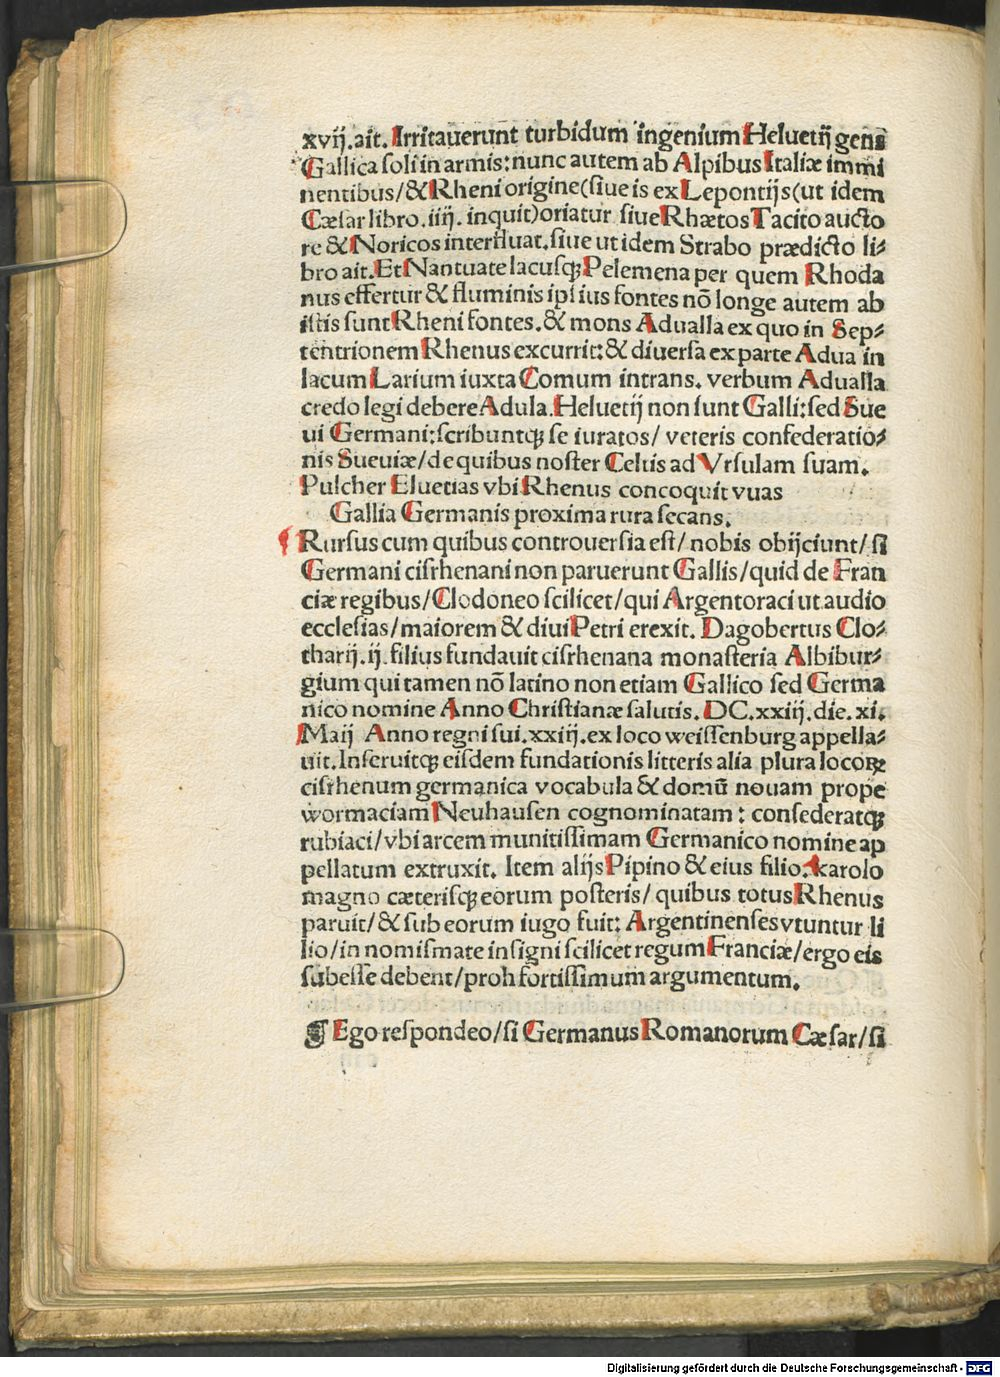 xvij.ait. Irritauerunt turbidum ingenium Heluetij gens
Gallica soli in armis: nunc autem ab Alpibus Italiæ immi
nentibus/& Rheni origine(siue is ex Lepontijs(ut idem
Cæsar libro. iiij. inquit)oriatur siue Rhætos Tacito aucto
re & Noricos interfluat. siue ut idem Strabo prædicto li⸗
bro ait. Et Nantuate lacusqꝫ Pelemena per quem Rhoda
nus effertur & fluminis ipsius fontes nō longe autem ab
istis sunt Rheni fontes. & mons Adualla ex quo in Sep⸗
tentrionem Rhenus excurrit: & diuersa ex parte Adua in
lacum Larium iuxta Comum intrans. verbum Adualla
credo legi debere Adula. Heluetij non sunt Galli: sed Sue
ui Germani: scribuntqꝫ se iuratos/ veteris confederatio⸗
nis Sueuiæ/ de quibus noster Celtis ad Vrsulam suam.
Pulcher Eluetias vbi Rhenus concoquit vuas
Gallia Germanis proxima rura secans.
Rursus cum quibus controuersia est/ nobis obijciunt/ si
Germani cisrhenani non paruerunt Gallis/ quid de Fran
ciæ regibus/ Clodoneo scilicet/ qui Argentoraci ut audio
ecclesias/ maiorem & diui Petri erexit. Dagobertus Clo⸗
tharij. ij. filius fundauit cisrhenana monasteria Albibur⸗
gium qui tamen nō latino non etiam Gallico sed Germa
nico nomine Anno Christianæ salutis. DC. xxiij. die. xi.
Maij Anno regni sui. xxiij. ex loco weissenburg appella⸗
uit. Inseruitqꝫ eisdem fundationis litteris alia plura locoꝝ
cisrhenum germanica vocabula & domū nouam prope
wormaciam Neuhausen cognominatam: consederatqꝫ
rubiaci/ vbi arcem munitissimam Germanico nomine ap
pellatum extruxit. Item alijs Pipino & eius filio. karolo
magno cæterisqꝫ eorum posteris/ quibus totus Rhenus
paruit/ & sub eorum iugo fuit: Argentinenses vtuntur li
lio/ in nomismate insigni scilicet regum Franciæ/ ergo eis
subesse debent/ proh fortissimum argumentum.
¶ Ego respondeo/ si Germanus Romanorum Cæsar/ si
Digitalisierung gefördert durch die Deutsche Forschungsgemeinschaft - DFG